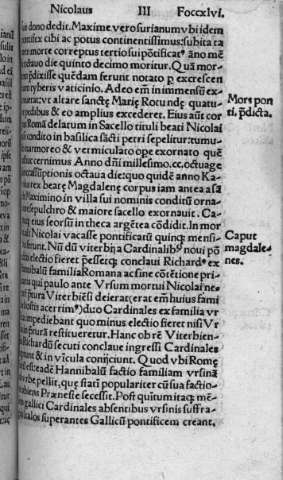 Nicolaus III Foccxlvi.
dono dedit. Maxime vero surianum vbi idem
tifex cibi ac potus continentissimus: subita ta
morte correptus tertio sui põtificatꝰ año mẽ
octauo die quinto decimo moritur. Quã mor
p̃dixisse quẽdam ferunt notato p excrescen
tyberis vaticinio. Adeo em̃ in immensũ ex
vt altare sanctę Marię Rotundę quatu
pedibus & eo amplius excederet. Eius aũt cor
Romã delatum in Sacello tituli beati Nicolai
condito in basilica sãcti petri sepelitur: tumu
marmoreo & vermiculato ope exornato quẽ
cernimus Anno dñi millesimo.cc.octuage
assũptionis octaua die: quo quidẽ anno Ka
rex beatę Magdalenę corpus iam antea a sã
Maximino in villa sui nominis conditũ orna
sepulchro & maiore sacello exornauit. Ca
eius seorsũ in theca argẽtea cõdidit. In mor
Nicolai vacasse pontificatũ quinq; mensi
Nũ dũ viterbij a Cardinalibꝰ noui põ
electio fieret pesseq; conclaui Richardꝰ ex
hannibalũ familia Romana ac sine cõtẽtione pri
qui paulo ante Vrsum mortui Nicolai ne
pfura Viterbiẽsi deierat: erat em̃ huius fami
hostis acerrimꝰ) duo Cardinales ex familia vr
impediebant quo minus electio fieret nisi Vr
restitueretur. Hanc ob rẽ Viterbien
Richardũ secuti conclaue ingressi Cardinales
& in vĩcula conijciunt. Quod vbi Romę
Hannibalũ factio familiam vrsinã
pellit, quę stati populariter cũ sua factio
Prænestę secessit. Post q̃uitum itaq; mẽ
gallici Cardinales absentibus vrsinis suffra
superantes Gallicũ pontificem creant.
Mors pon
ti. p̃dicta.
Caput
magdale
nes.